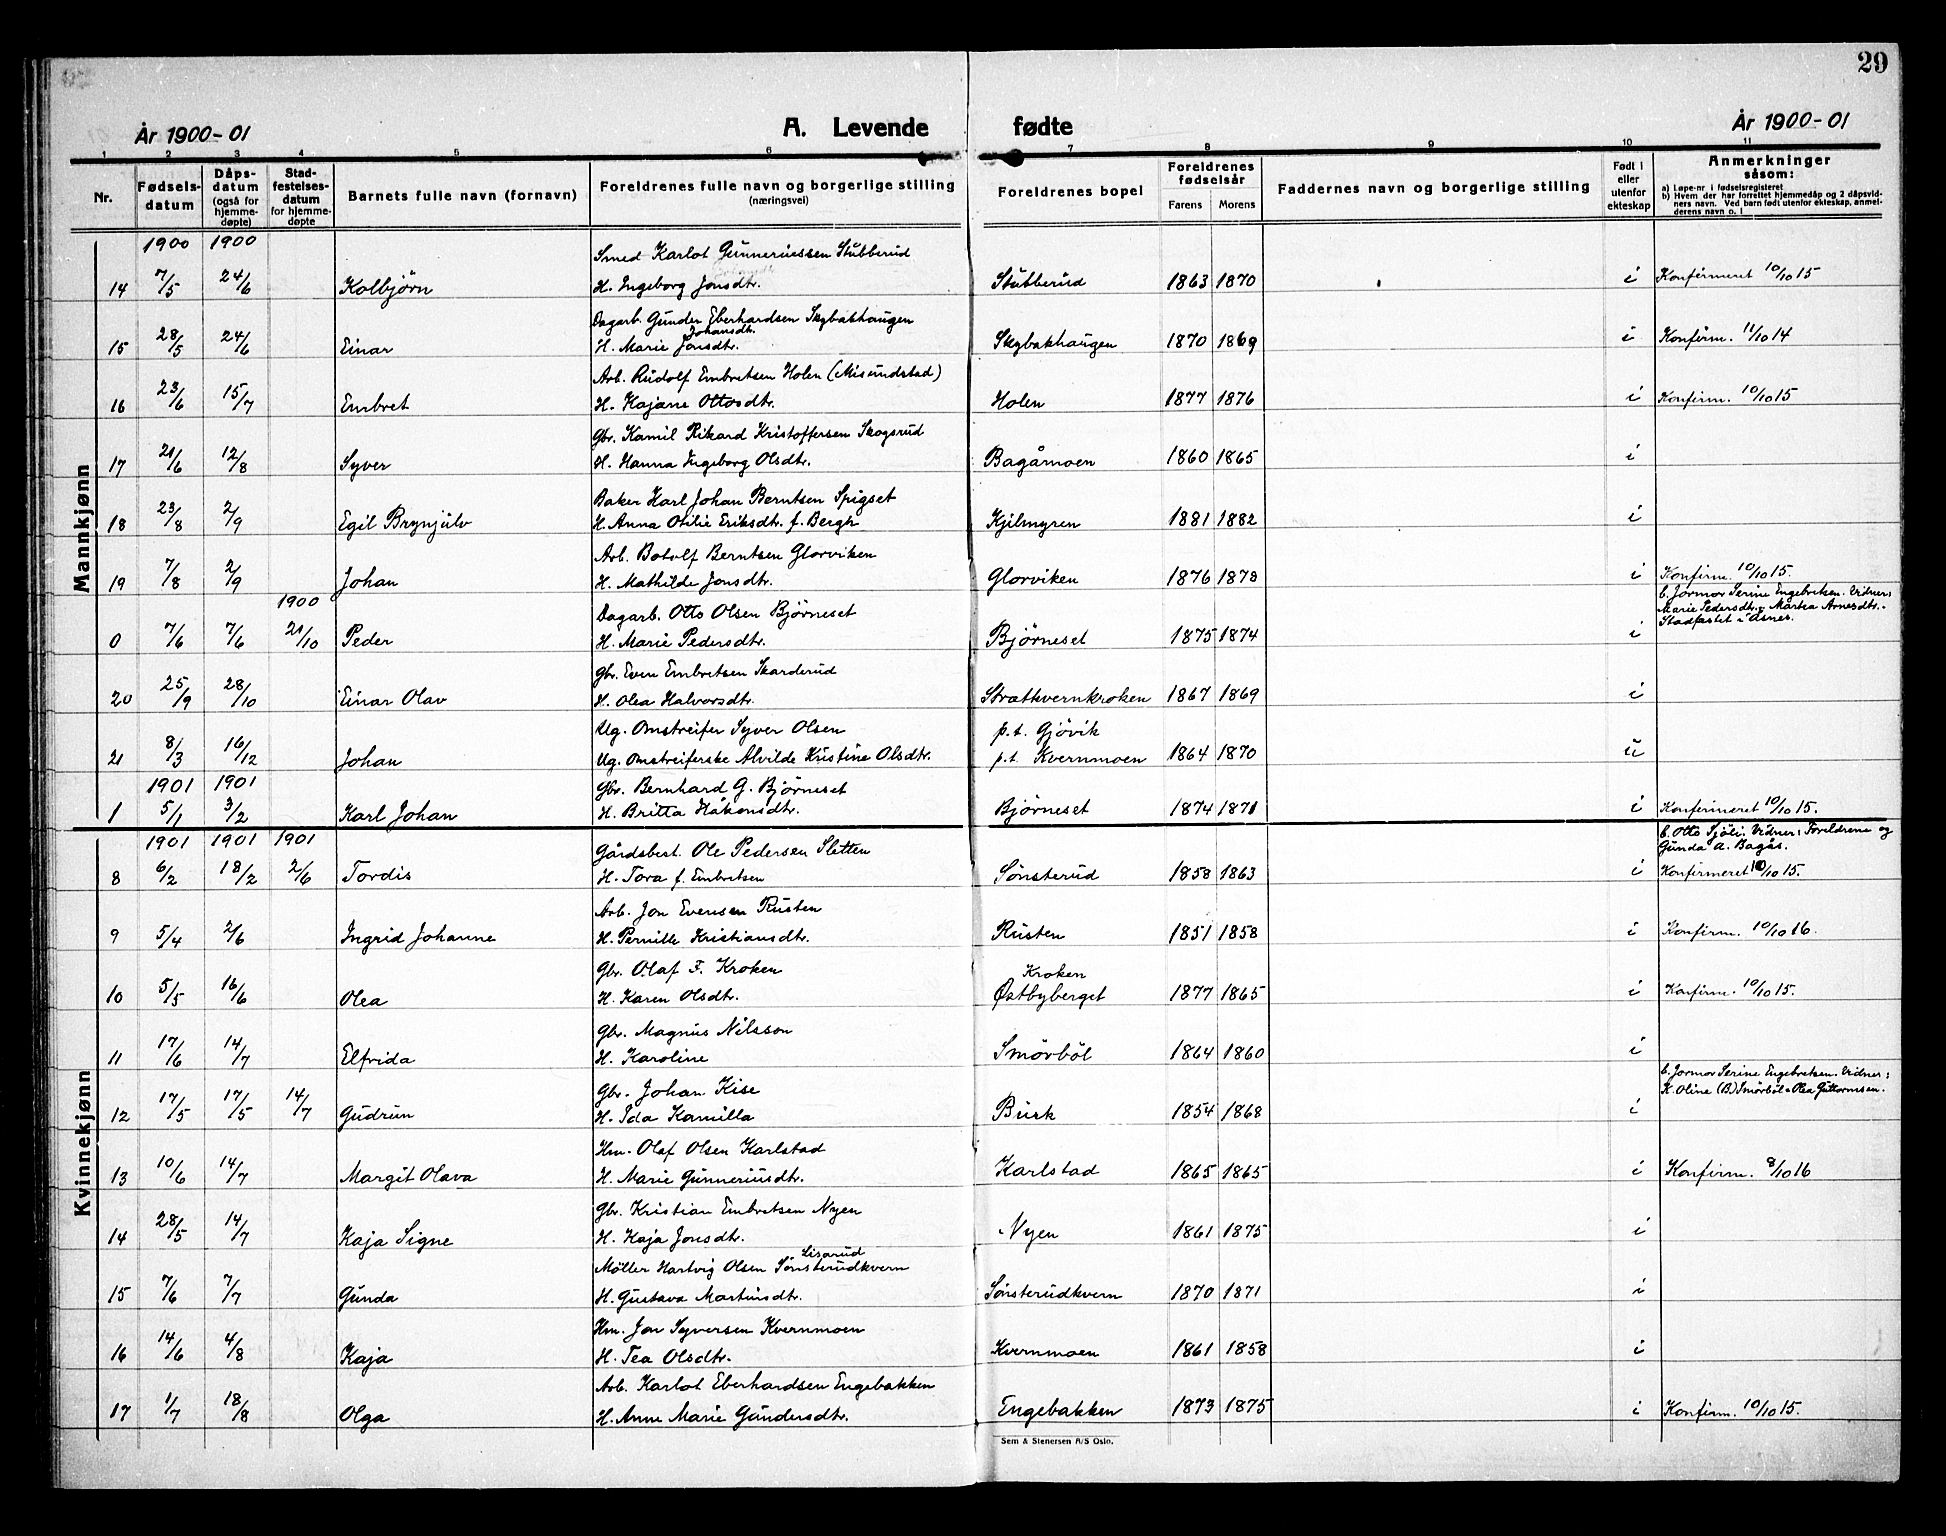 29
År 1900-01 A. Levende fødte År 1900-01
1 2 3 4 5 6 7 8 9 10 11
Nr. Fødselsdatum Dåpsdatum (også for hjemmedøpte) Stadfestelsesdatum for hjemmedøpte Barnets fulle navn (fornavn) Foreldrenes fulle navn og borgerlige stilling (næringsvei) Foreldrenes bopel Foreldrenes fødselsår Farens Morens Faddernes navn og borgerlige stilling Født i eller utenfor ekteskap Anmerkninger såsom:
a) Løpe-nr i fødselsregisteret
b) Hvem der har forrettet hjemmedåp og 2 dåpsvidners navn. Ved barn født utenfor ekteskap, anmelderens navn o. l
Mannkjønn
1900 1900
Smed Karlot Gunneriussen Stubberud
14 7/5 24/6 Kolbjørn H. Ingeborg Jonsdtr. Stubberud 1863 1870 i Konfirmeret 10/10 15
Dagarb. Gunder Eberhardsen Skybakhaugen
Johansdtr.
15 28/5 24/6 Einar H. Marie Jonsdtr. Skybakhaugen 1870 1869 i Konfirm. 11/10 14
Arb. Rudolf Embretsen Holen (Misundstad)
16 23/6 15/7 Embret H. Kajane Ottosdtr. Holen 1877 1876 i Konfirm. 10/10 15
Gbr. Kamil Rikard Kristoffersen Skogsrud
17 21/6 12/8 Syver H. Hanna Ingeborg Olsdtr. Bagåmoen 1860 1865 i
Baker Karl Johan Berntsen Spigset
18 23/8 2/9 Egil Brynjulv H. Anna Otilie Eriksdt. f. Bergh Kjilmyren 1881 1882 i
Arb. Botolf Berntsen Glorviken
19 7/8 2/9 Johan H. Mathilde Jonsdtr. Glorviken 1876 1878 i Konfirm. 10/10 15.
1900
Dagarb. Otto Olsen Bjørneset
b. Jormor Serine Engebretsen. Vidner:
Marie Pedersdtr. & Martea Arnesdtr.
Stadfæstet i Åsnes.
0 7/6 7/6 21/10 Peder H. Marie Pedersdtr. Bjørneset 1875 1874 i
Gbr. Even Embretsen Skarderud
20 25/9 28/10 Einar Olav H. Olea Halvorsdtr. Strætkvernkroken 1867 1869 i
Ug. Omstreifer Syver Olsen p.t. Gjøvik
21 8/3 16/12 Johan Ug. Omstreiferske Alvilde Kristine Olsdtr. p.t. Kvernmoen 1864 1870 u
1901 1901
Gbr. Bernhard G. Bjørneset
1 5/1 3/2 Karl Johan H. Britta Håkonsdtr. Bjørneset 1874 1871 i Konfirmeret 10/10 15.
Kvinnekjønn
1901 1901 1901
Gårdsbest. Ole Pedersen Sletten
b. Otto Sjöli. Vidner: Foreldrene og
Gunda A. Bagås.
8 6/2 18/2 2/6 Tordis H. Tora f. Embretsen Sønsterud 1858 1863 i Konfirmeret 10/10 15.
Arb. Jon Evensen Rusten
9 5/4 2/6 Ingrid Johanne H. Pernille Kristiansdtr. Rusten 1851 1858 i Konfirm. 10/10 16.
Gbr. Olaf F. Kroken Kroken
10 5/5 16/6 Olea H. Karen Olsdtr. Østbyberget 1877 1865 i Konfirm. 10/10 15.
Gbr. Magnus Nilsson
11 17/6 14/7 Elfrida H. Karoline Smörböl 1864 1860 i
Gbr. Johan Kise
b. Jormor Serine Engebretsen. Vidner:
K. Oline (B.) Smörböl & Olea Guttormsen.
12 17/5 17/5 14/7 Gudrun H. Ida Kamilla Busk 1854 1868 i
Hm. Olaf Olsen Karlstad
13 10/6 14/7 Margit Olava H. Marie Gunneriusdtr. Karlstad 1865 1865 i Konfirm. 8/10 16
Gbr. Kristian Embretsen Nyen
14 28/5 14/7 Kaja Signe H. Kaja Jonsdtr. Nyen 1861 1875 i
Lisarud
Møller Hartvig Olsen Sønsterudkvern
15 7/6 7/7 Gunda H. Gustava Martinsdtr. Sønsterudkvern 1870 1871 i
Hm. Jon Syversen Kvernmoen
16 14/6 4/8 Kaja H. Tea Olsdtr. Kvernmoen 1861 1858 i
Arb. Karlot Eberhardsen Engebakken
17 1/7 18/8 Olga H. Anne Marie Gundersdtr. Engebakken 1873 1875 i Konfirm. 10/10 15.
Sem & Stenersen A/S Oslo.